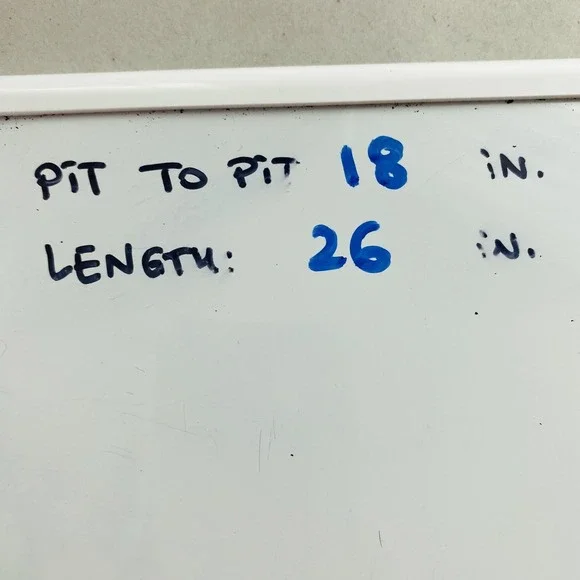 PIT TO PIT 18 IN.
LENGTH: 26 IN.